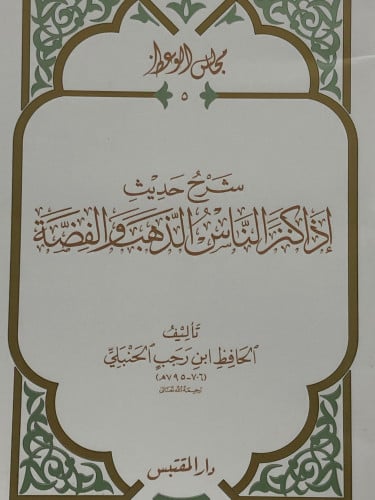 مجالس الوعظ
٥
شَرْحُ حَدِيْثِ
إِذَا كَنَزَ النَّاسُ الذَّهَبَ وَالفِضَّةَ
تَأليْفُ
الحَافِظِ ابنِ رَجَبٍ الحَنبَليِّ
(٧٠٦-٧٩٥هـ)
رحمه الله تعالى
دار المقتبس